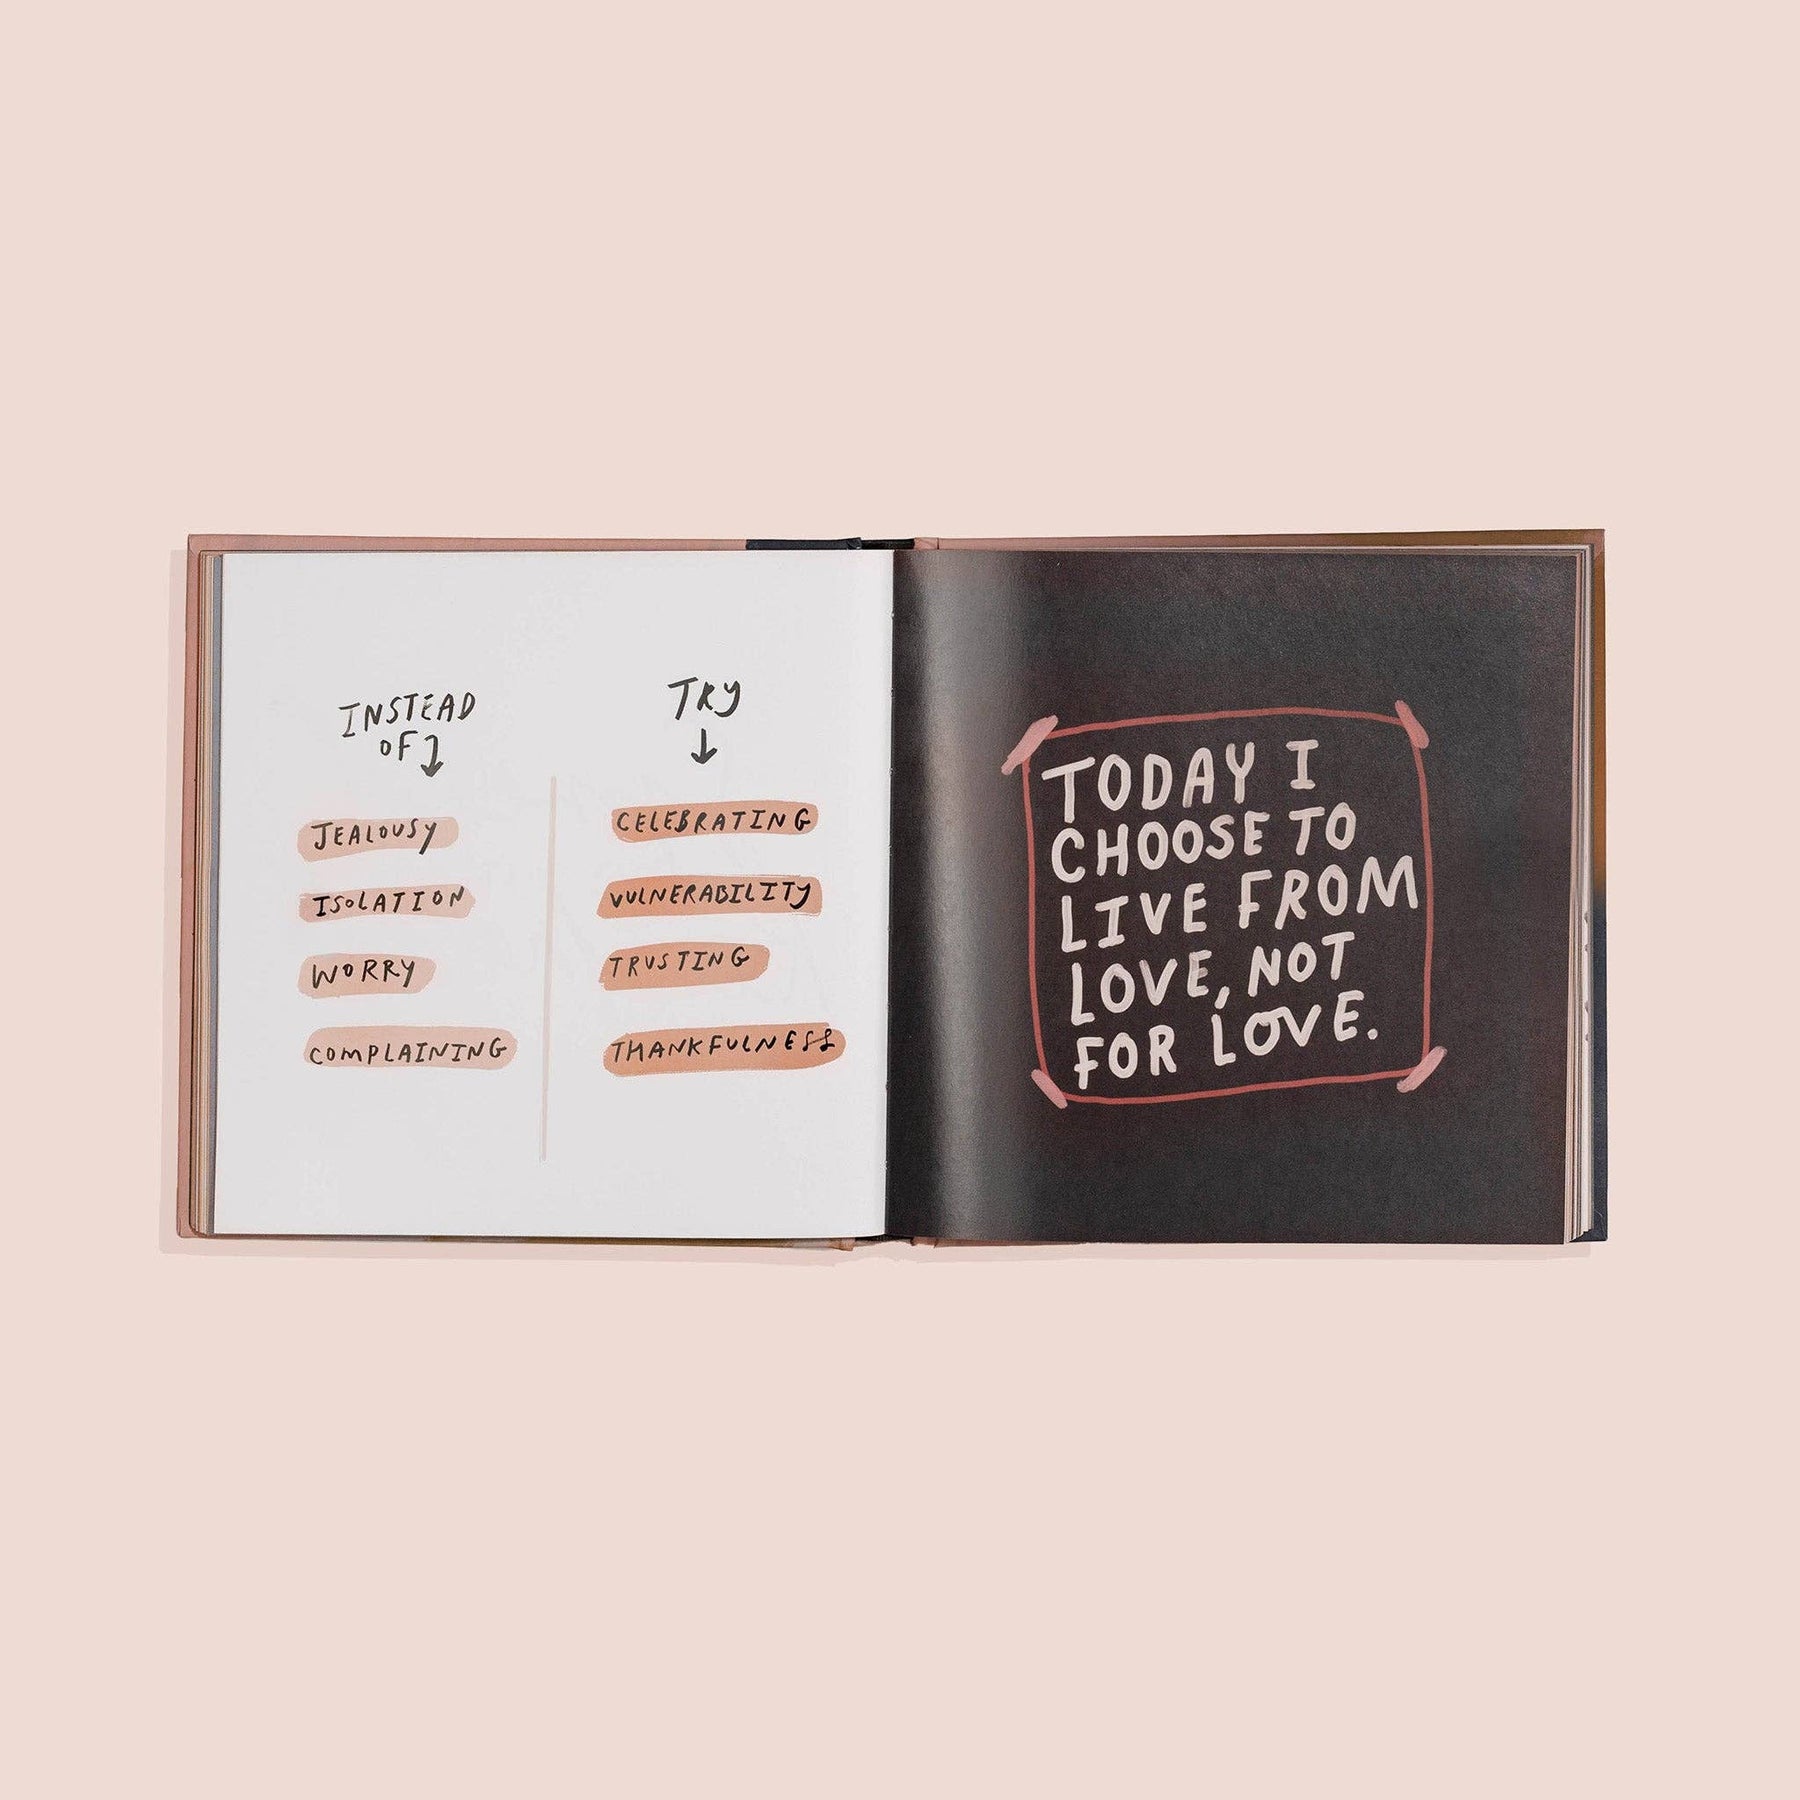 INSTEAD
OF
JEALOUSY
ISOLATION
WORRY
COMPLAINING
TRY
CELEBRATING
VULNERABILITY
TRUSTING
THANKFULNESS
TODAY I
CHOOSE TO
LIVE FROM
LOVE, NOT
FOR LOVE.